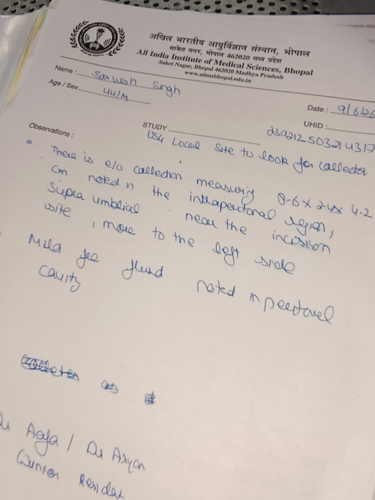 अखिल भारतीय आयुर्विज्ञान संस्थान, भोपाल
साकेत नगर, भोपाल 462020 मध्य प्रदेश
All India Institute of Medical Sciences, Bhopal
Saket Nagar, Bhopal 462020 Madhya Pradesh
www.aiimsbhopal.edu.in
Name : Sarvesh Singh
Age / Sex 44/M
Date : 9/6/26
UHID :
STUDY
Observations : USG Local Site to look for collection
* There is e/o collection measuring 8.6 x 2.4 x 4.2
cm noted in the intraperitoneal region,
supra umbilical near the incision
site, more to the left side
Mild free fluid noted in peritoneal
cavity
Dr Aryan
Junior Resident